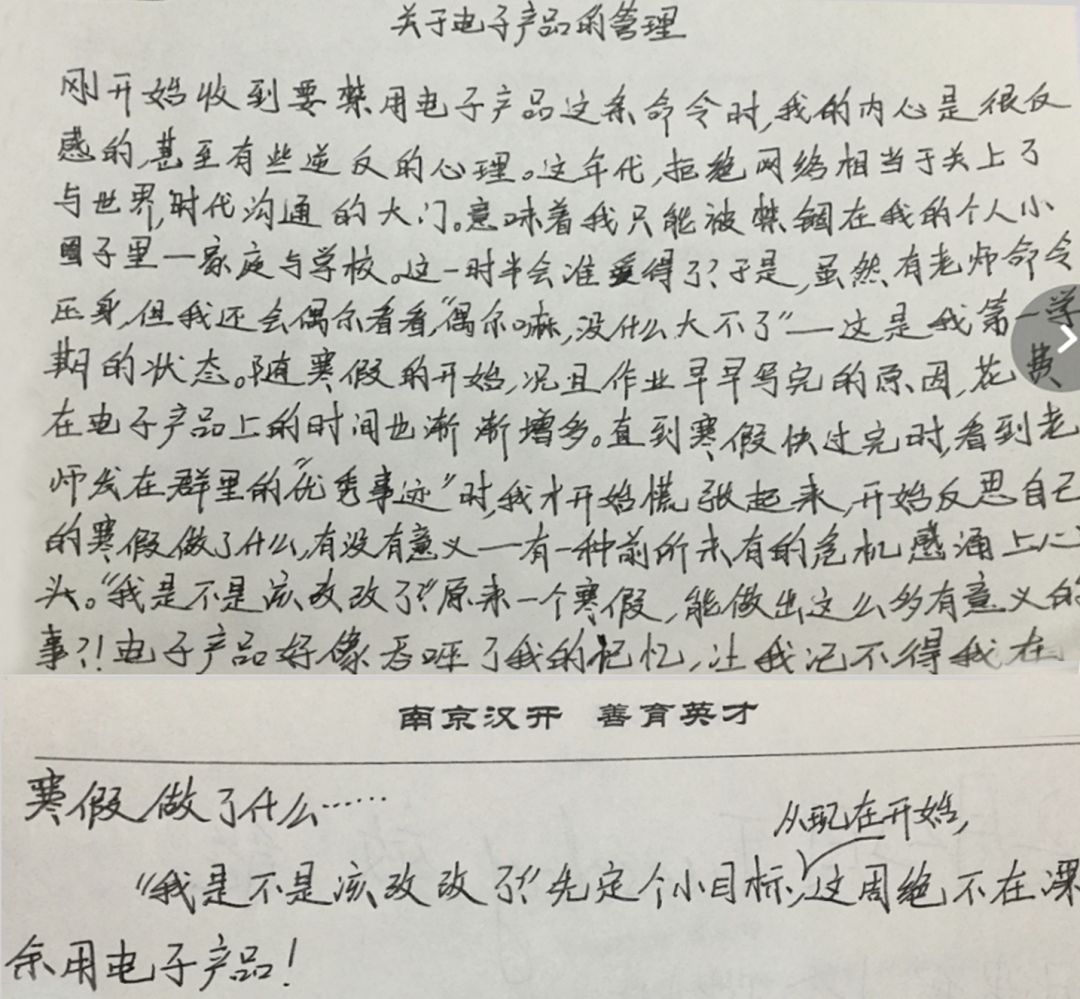 关于电子产品的管理
刚开始收到要禁用电子产品这条命令时,我的内心是很反
感的,甚至有些逆反的心理。这年代,拒绝网络相当于关上了
与世界,时代沟通的大门。意味着我只能被禁锢在我的个人小
圈子里—家庭与学校。这一时半会准受得了?于是,虽然有老师命令
压身,但我还会偶尔看看,“偶尔嘛,没什么大不了”—这是我第一学
期的状态。随寒假的开始,况且作业早早写完的原因,花费
在电子产品上的时间也渐渐增多。直到寒假快过完时,看到老
师发在群里的“优秀事迹”时,我才开始慌张起来,开始反思自己
的寒假做了什么,有没有意义—有一种前所未有的危机感涌上心
头。“我是不是该改改了?”原来一个寒假,能做出这么多有意义的
事?!电子产品好像吞咽了我的记忆,让我记不得我在
南京汉开 善育英才
寒假做了什么……
从现在开始,
“我是不是该改改了?”先定个小目标,这周绝不在课
余用电子产品!